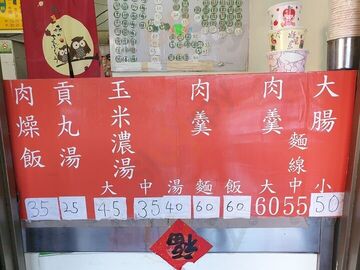 肉燥飯
貢丸湯
玉米濃湯
肉羹
肉羹
麵線
大腸
大 中 湯 麵 飯 大 中 小
35 25 45 35 40 60 60 60 55 50
福